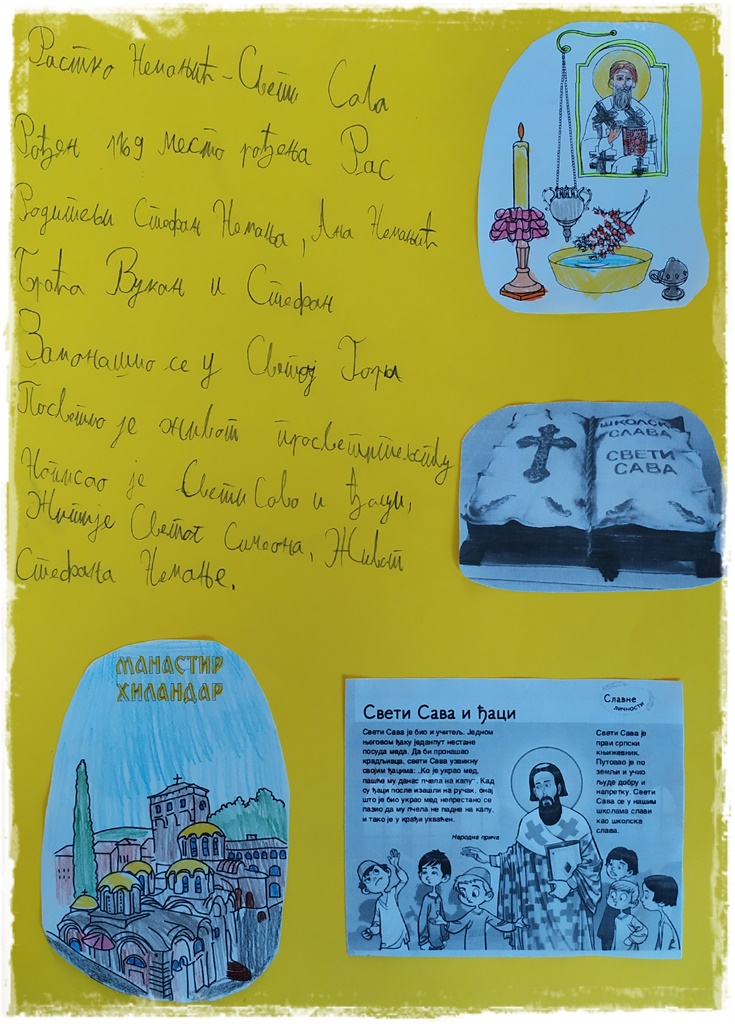 Растко Немањић - Свети Сава
Рођен 1169 место рођења Рас
Родитељи Стефан Немања, Ана Немањић
Браћа Вукан и Стефан
Замонашио се у Светој Гори
Посветио је живот просветитељству
Написао је Свети Сава и ђаци,
Житије Светог Симеона, Живот
Стефана Немање.
ШКОЛСКА
СЛАВА
СВЕТИ
САВА
МАНАСТИР
ХИЛАНДАР
Славне
личности
Свети Сава и ђаци
Свети Сава је био и учитељ. Једном
његовом ђаку једанпут нестане
посуда меда. Да би пронашао
крадљивца, свети Сава узвикну
својим ђацима: „Ко је украо мед,
пашће му данас пчела на капу“. Кад
су ђаци после изашли на ручак, онај
што је био украо мед непрестано се
пазио да му пчела не падне на капу,
и тако је у крађи ухваћен.
Народна прича
Свети Сава је
први српски
књижевник.
Путовао је по
земљи и учио
људе добру и
напретку. Свети
Сава се у нашим
школама слави
као школска
слава.